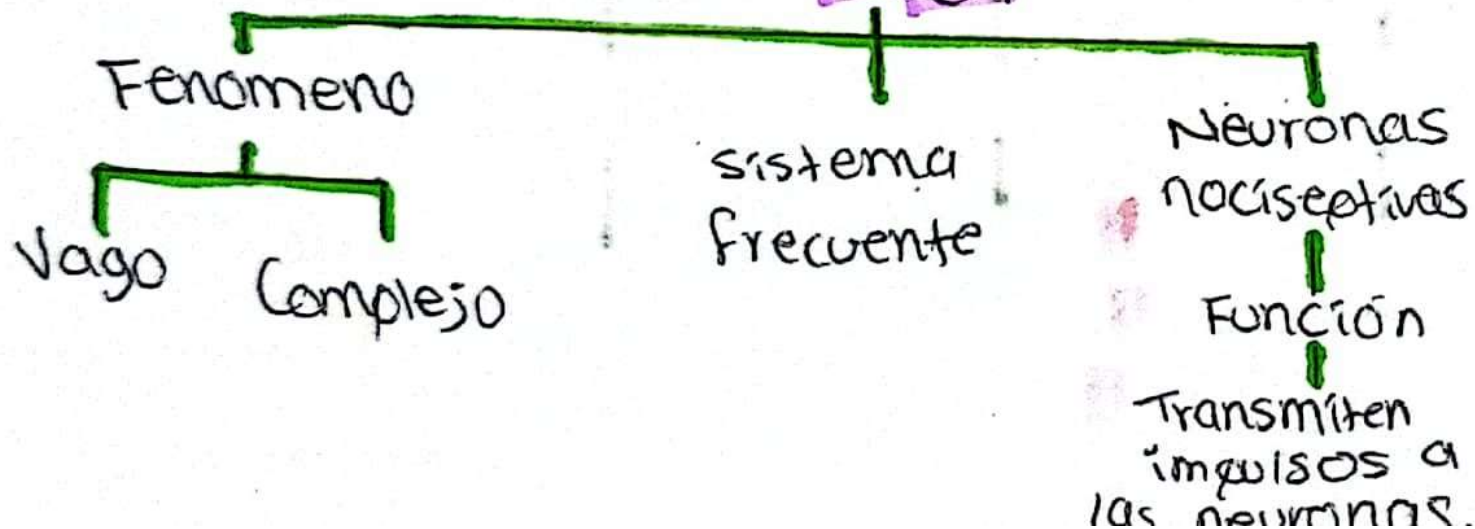 Fenomeno
Vago
Complejo
sistema
frecuente
Neuronas
nociseptivas
Función
Transmiten
impulsos a
las neuronas.